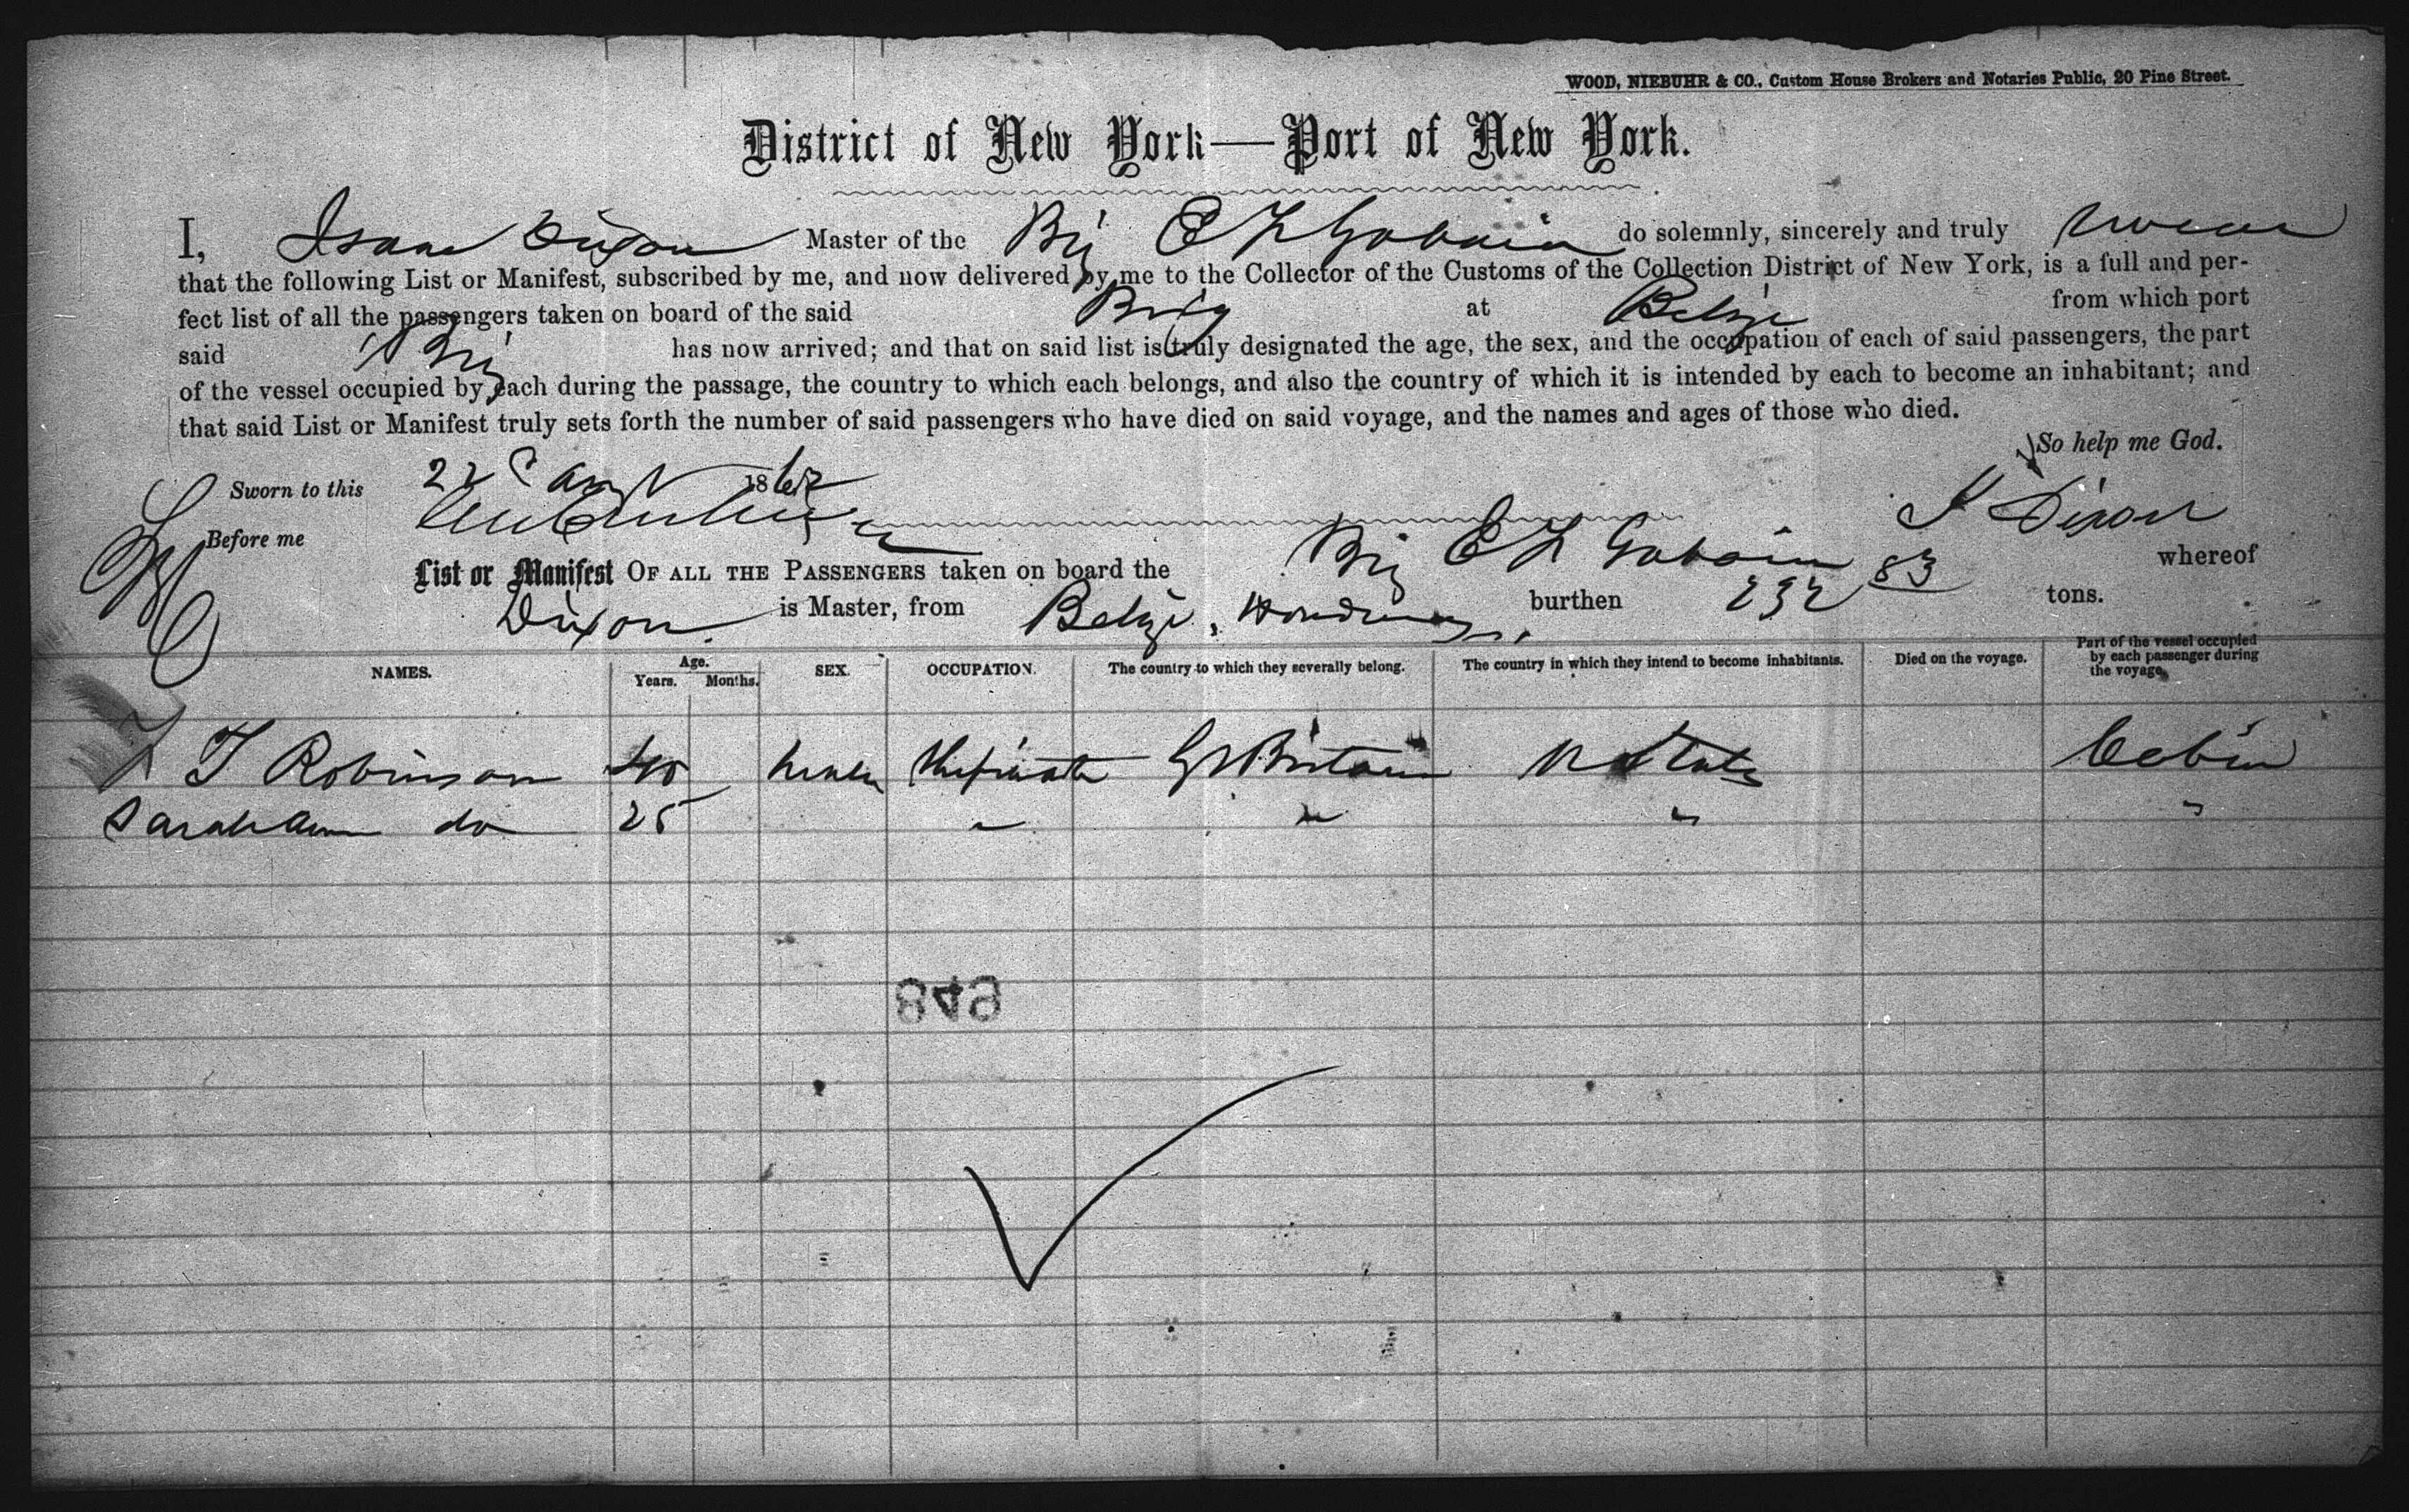 WOOD, NIEBUHR & CO., Custom House Brokers and Notaries Public, 20 Pine Street.
District of New York—Port of New York.
I, Isaac Dixon Master of the Brig E L Gabain do solemnly, sincerely and truly swear
that the following List or Manifest, subscribed by me, and now delivered by me to the Collector of the Customs of the Collection District of New York, is a full and per-
fect list of all the passengers taken on board of the said Brig at Belize from which port
said Brig has now arrived; and that on said list is truly designated the age, the sex, and the occupation of each of said passengers, the part
of the vessel occupied by each during the passage, the country to which each belongs, and also the country of which it is intended by each to become an inhabitant; and
that said List or Manifest truly sets forth the number of said passengers who have died on said voyage, and the names and ages of those who died.
So help me God.
Sworn to this 22d 186
Before me
I Dixon
List or Manifest OF ALL THE PASSENGERS taken on board the Brig E L Gabain whereof
Dixon is Master, from Belize, Honduras burthen 232 83 tons.
NAMES. Age. Years. Months. SEX. OCCUPATION. The country to which they severally belong. The country in which they intend to become inhabitants. Died on the voyage. Part of the vessel occupied by each passenger during the voyage.
T Robinson 40 Gt Britain U States Cabin
Sarah Ann do 25 " " " "
849